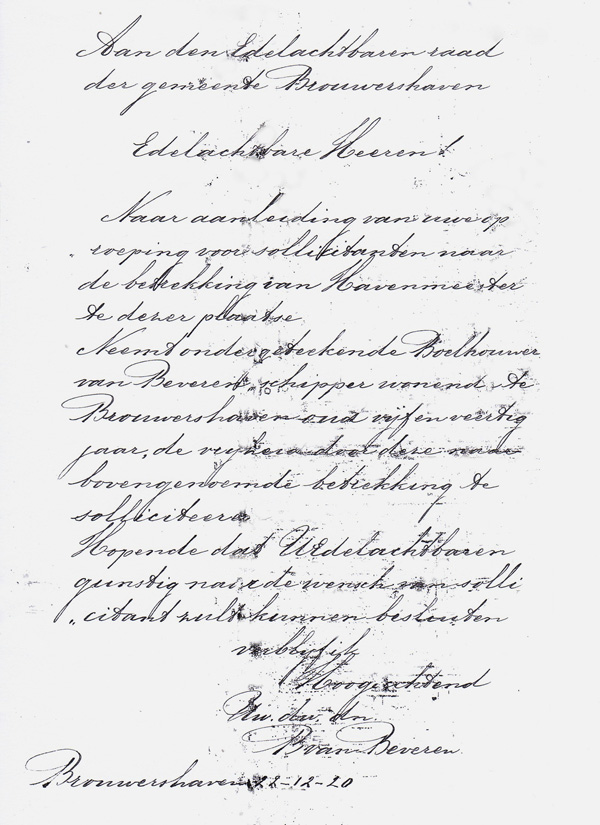 Aan den Edelachtbaren raad
der gemeente Brouwershaven
Edelachtbare Heeren!
Naar aanleiding van uwe op
„roeping voor sollicitanten naar
de betrekking van Havenmeester
te dezer plaatse
Neemt ondergeteekende Boelhouwer
van Beveren, schipper wonend te
Brouwershaven oud vijf en veertig
jaar, de vrijheid door deze naar
bovengenoemde betrekking te
solliciteeren
Hopende dat UEdelachtbaren
gunstig naar de wensch van solli
„citant zult kunnen besluiten
verblijf ik
Hoogachtend
Uw. dw. dn.
B van Beveren.
Brouwershaven 22-12-20